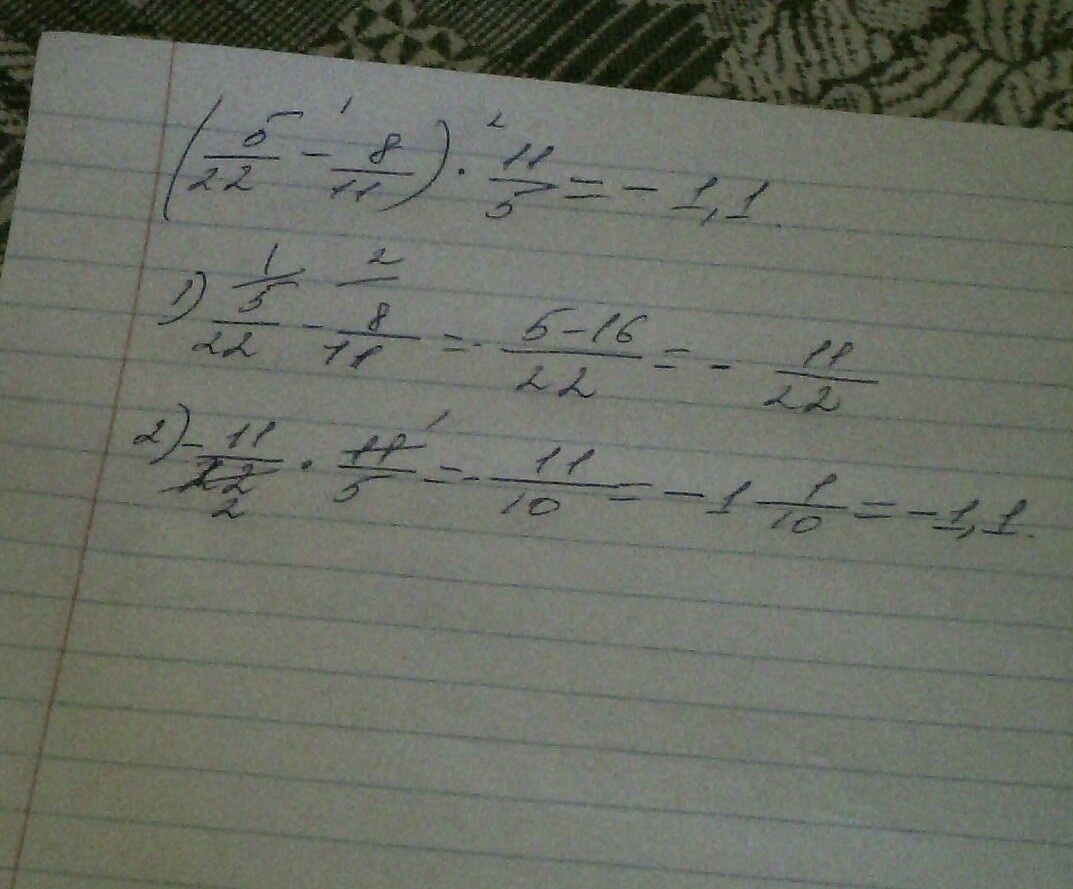 (5/22 - 8/11) · 11/5 = - 1,1
1 2
1) 5/22 - 8/11 = - 5-16/22 = - 11/22
2) - 11/22 · 11/5 = - 11/10 = - 1 1/10 = - 1,1.